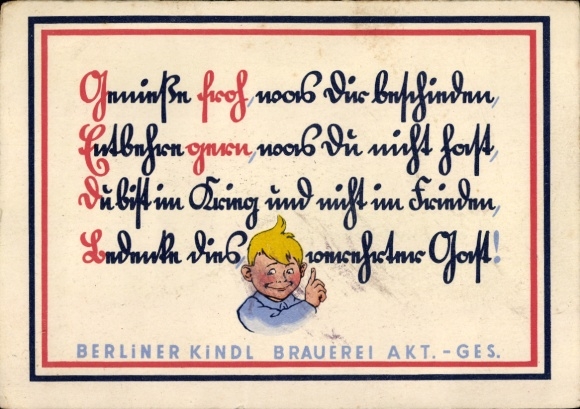 Genieße froh, was Dir beschieden,
Entbehre gern, was Du nicht hast,
Du bist im Krieg und nicht im Frieden,
Bedenke dies, verehrter Gast!
BERLiNER KiNDL BRAUEREI AKT.-GES.